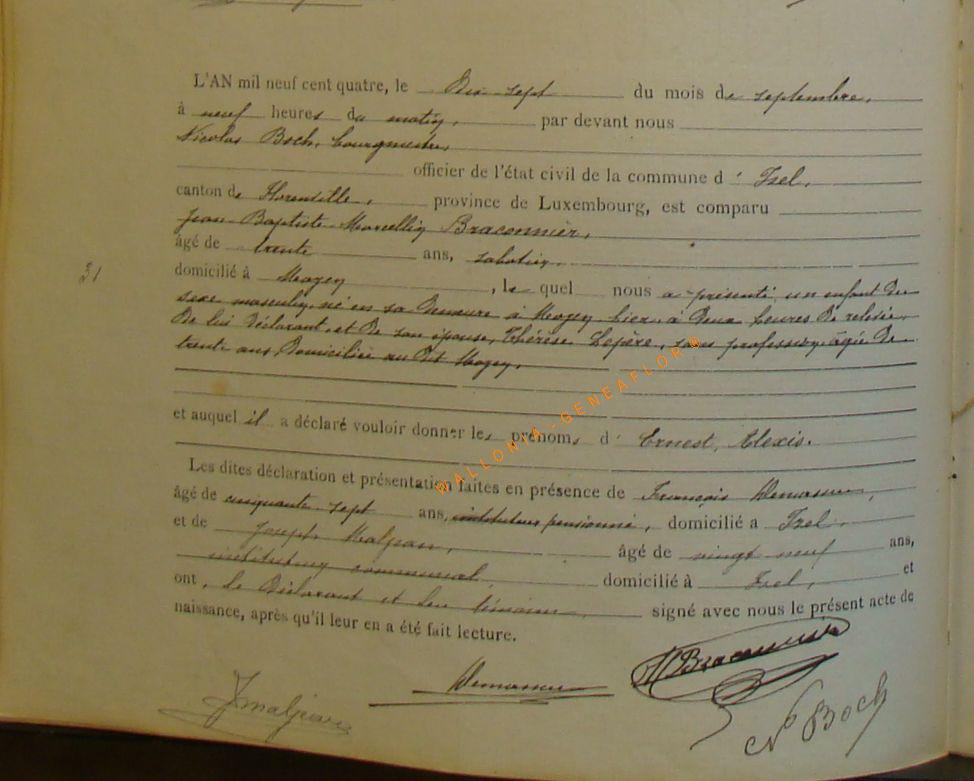 L'AN mil neuf cent quatre, le Dix-sept du mois de septembre,
à neuf heures du matin, par devant nous
Nicolas Boch, bourgmestre,
officier de l'état civil de la commune d' Izel,
canton de Florenville, province de Luxembourg, est comparu
Jean Baptiste Marcellin Braconnier,
âgé de trente ans, sabotier,
31
domicilié à Moyen, lequel nous a présenté un enfant du
sexe masculin, né en sa demeure à Moyen, hier, à deux heures de relevée,
de lui déclarant, et de son épouse, Thérèse Lepère, sans profession, âgée de
trente ans, domiciliée au dit Moyen,
et auquel il a déclaré vouloir donner les prénoms d' Ernest, Alexis.
Les dites déclaration et présentation faites en présence de François
âgé de cinquante sept ans, instituteur pensionné, domicilié à Izel,
et de Joseph Maljean, âgé de vingt neuf ans,
instituteur communal, domicilié à Izel, et
ont, le déclarant et les témoins, signé avec nous le présent acte de
naissance, après qu'il leur en a été fait lecture.
WALLONIA-GENEAFLOR®
Braconnier
J Maljean
N. Boch